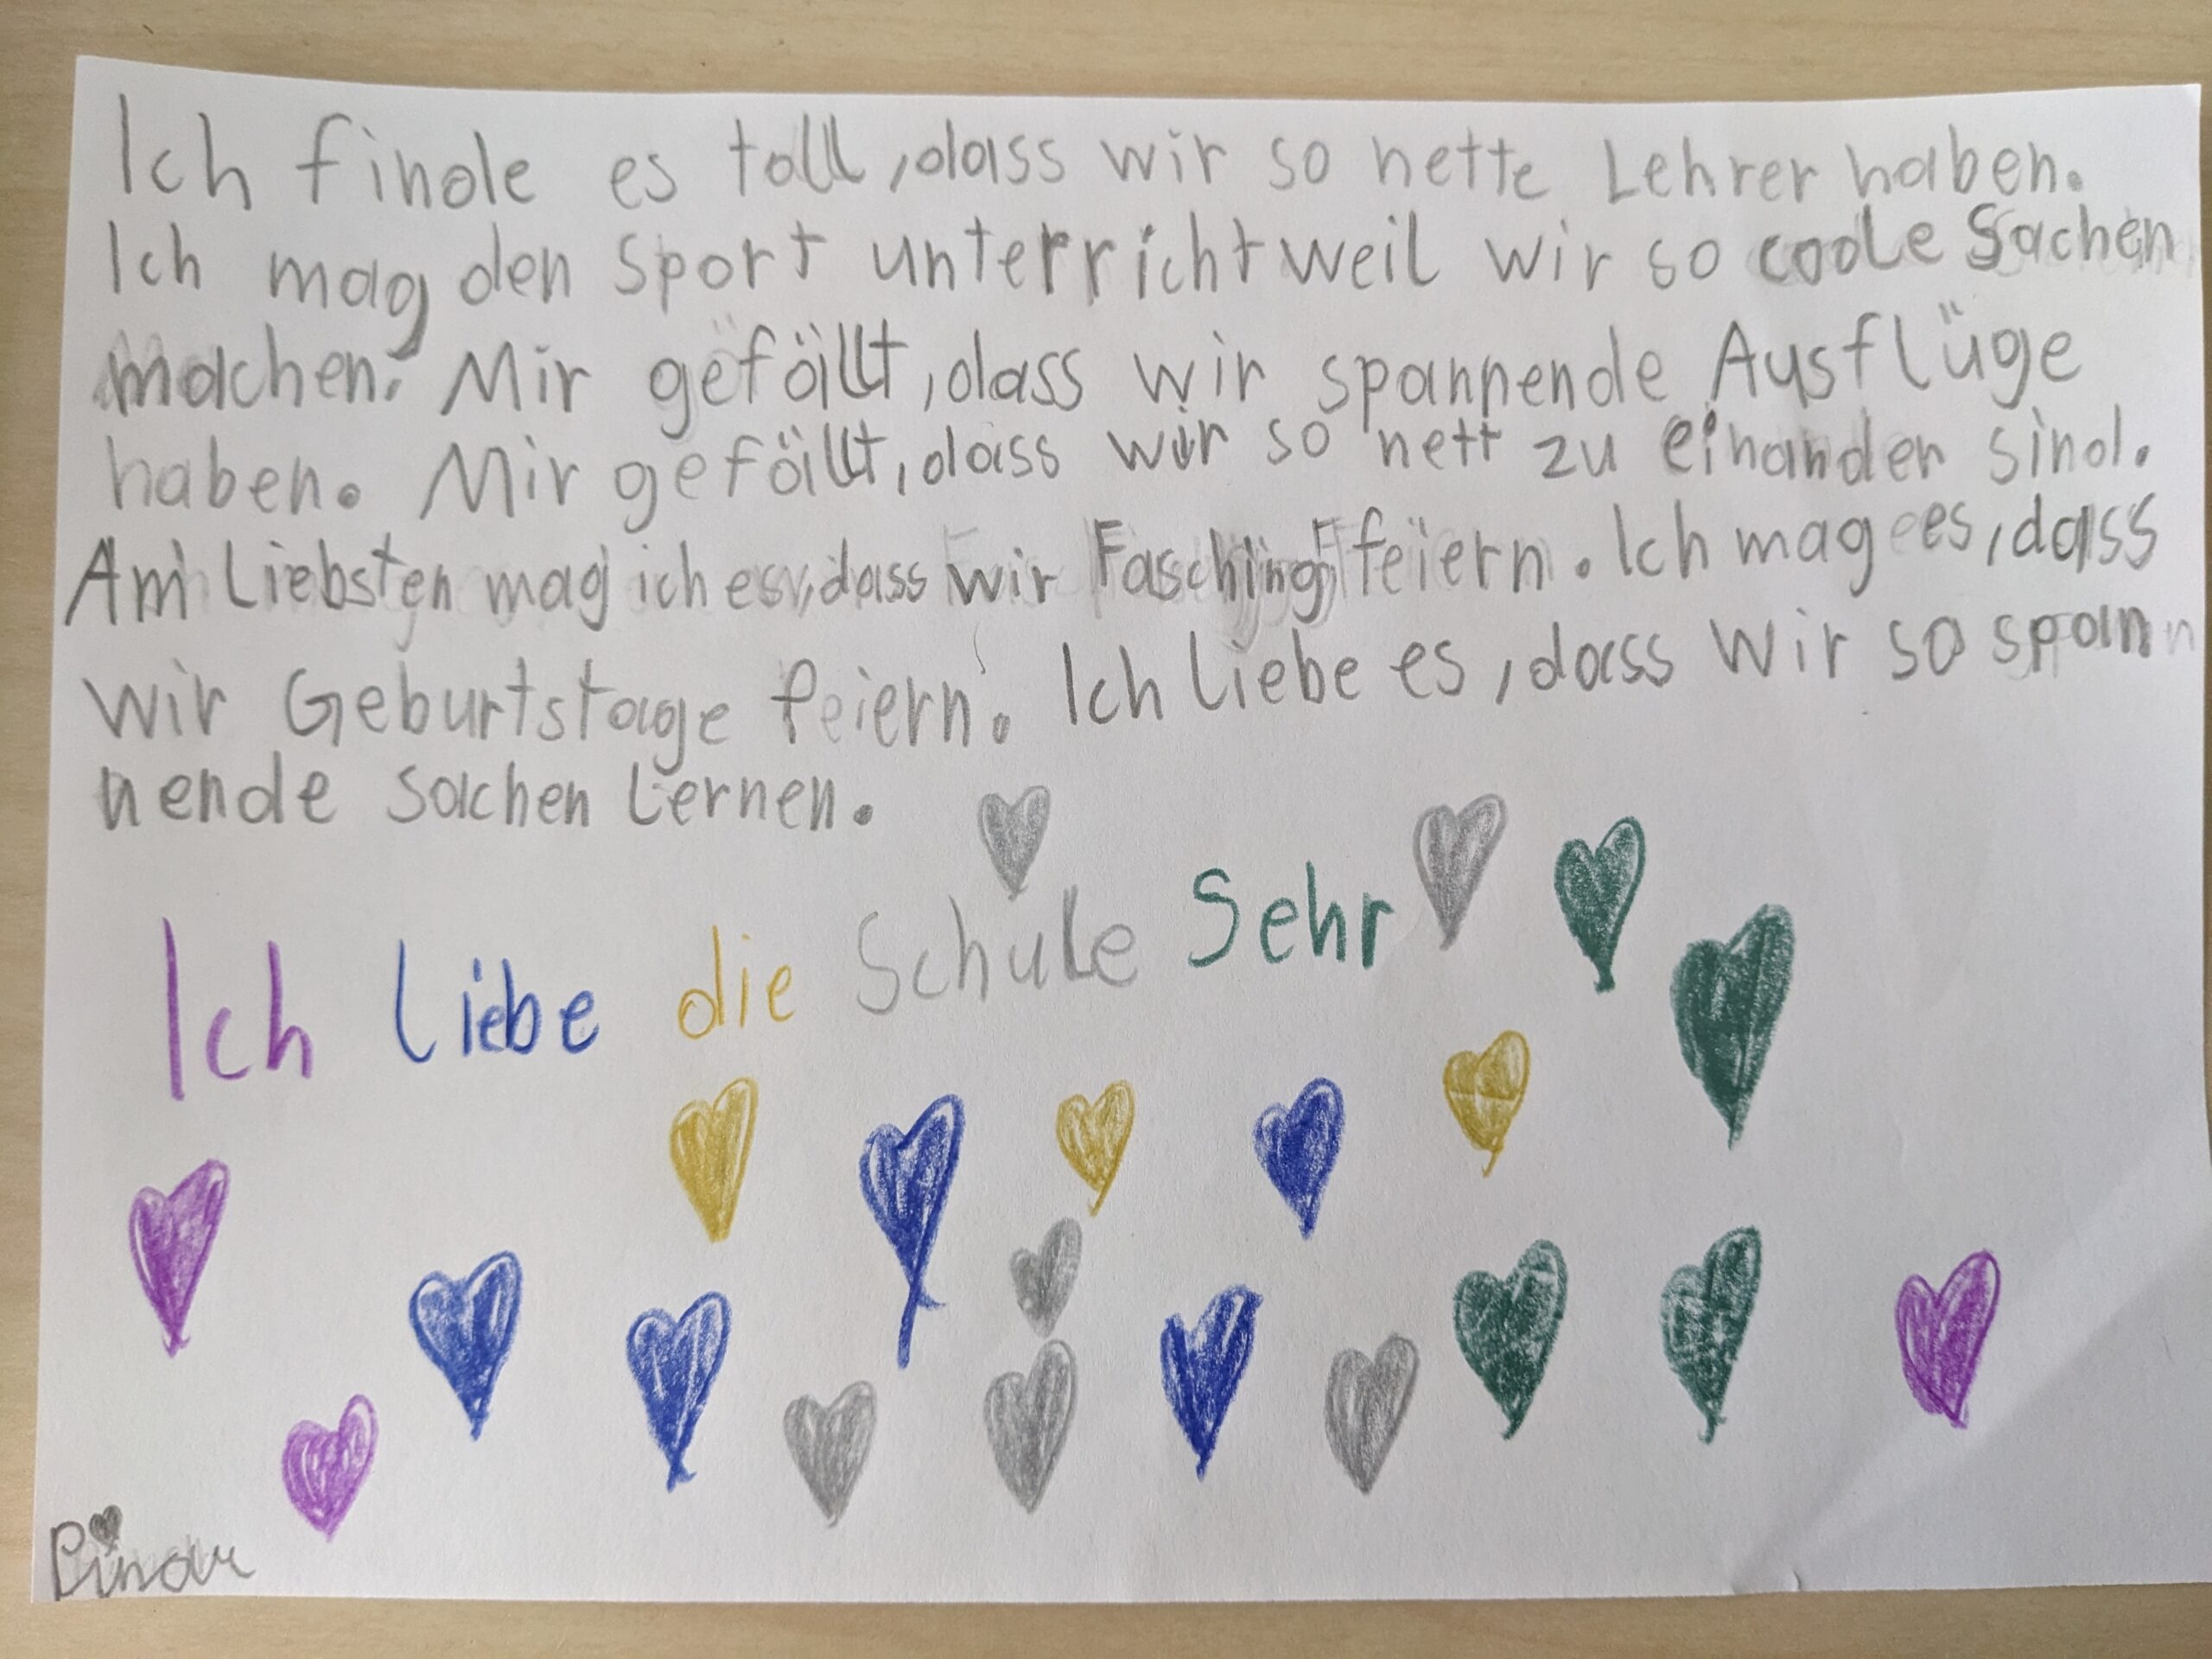 Ich finde es toll, dass wir so nette Lehrer haben.
Ich mag den Sport unterricht weil wir so coole Sachen
machen. Mir gefällt, dass wir spannende Ausflüge
haben. Mir gefällt, dass wir so nett zu einander sind.
Am Liebsten mag ich es, dass wir Fasching feiern. Ich mag es, dass
wir Geburtstage feiern. Ich liebe es, dass wir so spann
nende Sachen lernen.
Ich liebe die Schule Sehr
Pinar